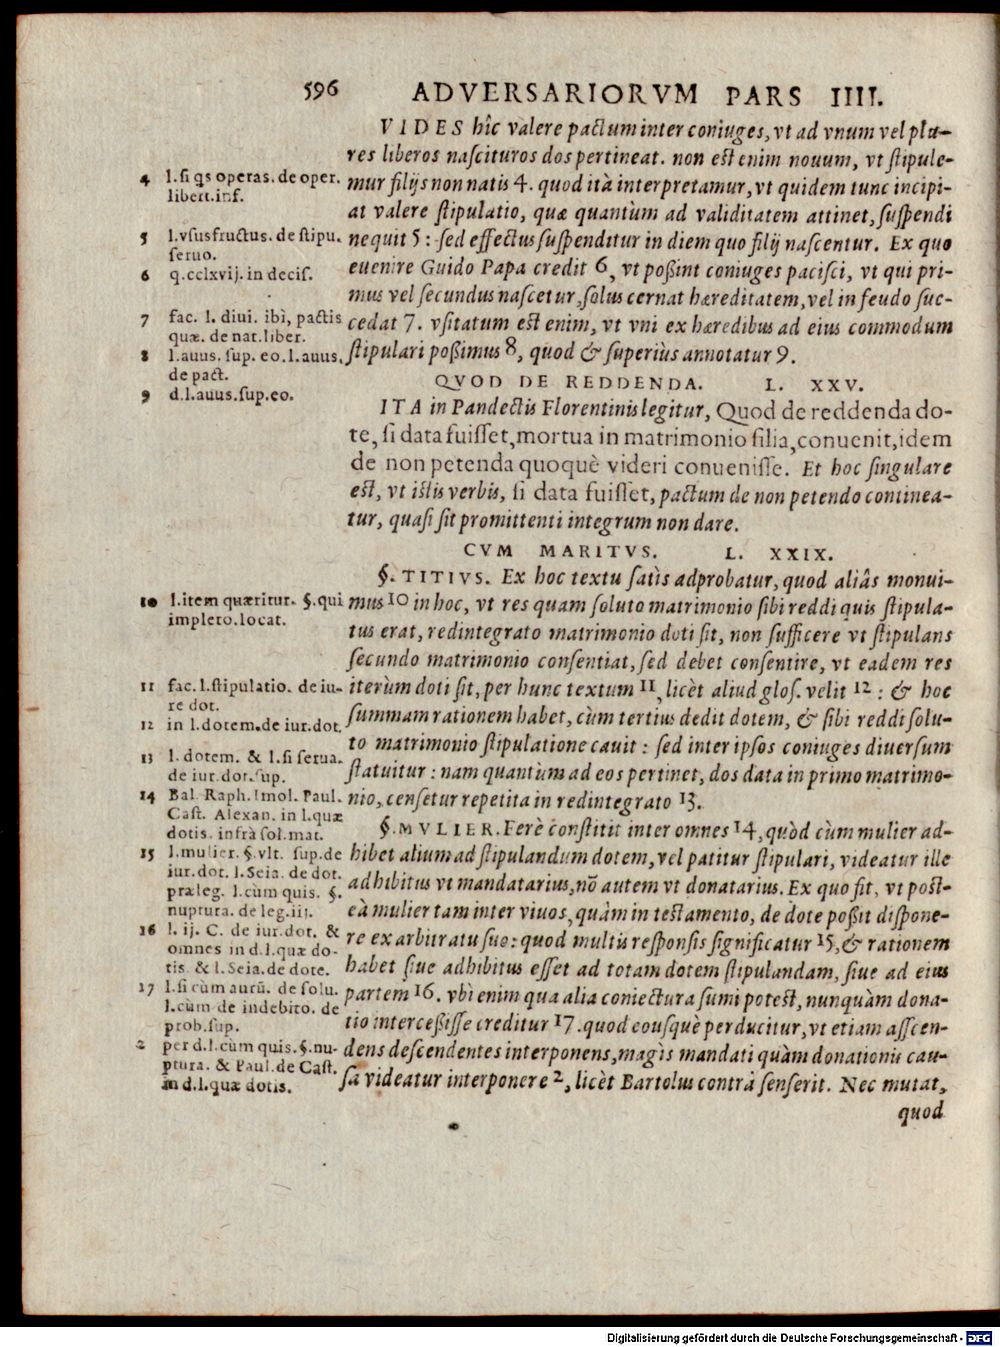 596 ADVERSARIORVM PARS IIII.
VIDES hîc valere pactum inter coniuges, vt ad vnum vel plu-
res liberos nascituros dos pertineat. non est enim nouum, vt stipule-
mur filijs non natis 4. quod ità interpretamur, vt quidem tunc incipi-
at valere stipulatio, quæ quantùm ad validitatem attinet, suspendi
nequit 5 : sed effectus suspenditur in diem quo filij nascentur. Ex quo
euenire Guido Papa credit 6, vt poßint coniuges pacisci, vt qui pri-
mus vel secundus nascetur, solus cernat hæreditatem, vel in feudo suc-
cedat 7. vsitatum est enim, vt vni ex hæredibus ad eius commodum
stipulari poßimus 8, quod & superiùs annotatur 9.
4 l.si qs operas. de oper.
libert.inf.
5 l.vsusfructus. de stipu.
seruo.
6 q.cclxvij. in decis.
7 fac. l. diui. ibì, pactis
quæ. de nat.liber.
8 l.auus. sup. eo.l.auus.
de pact.
9 d.l.auus.sup.eo.
QVOD DE REDDENDA. L. XXV.
ITA in Pandectis Florentinis legitur, Quod de reddenda do-
te, si data fuisset, mortua in matrimonio filia, conuenit, idem
de non petenda quoquè videri conuenisse. Et hoc singulare
est, vt istis verbis, si data fuisset, pactum de non petendo continea-
tur, quasi sit promittenti integrum non dare.
CVM MARITVS. L. XXIX.
§. TITIVS. Ex hoc textu satìs adprobatur, quod aliâs monui-
mus 10 in hoc, vt res quam soluto matrimonio sibi reddi quis stipula-
tus erat, redintegrato matrimonio doti sit, non sufficere vt stipulans
secundo matrimonio consentiat, sed debet consentire, vt eadem res
iterùm doti sit, per hunc textum 11, licèt aliud glos. velit 12 : & hoc
summam rationem habet, cùm tertius dedit dotem, & sibi reddi solu-
to matrimonio stipulatione cauit : sed inter ipsos coniuges diuersum
statuitur : nam quantùm ad eos pertinet, dos data in primo matrimo-
nio, censetur repetita in redintegrato 13.
§. MVLIER. Ferè constitit inter omnes 14, quòd cùm mulier ad-
hibet alium ad stipulandum dotem, vel patitur stipulari, videatur ille
adhibitus vt mandatarius, nõ autem vt donatarius. Ex quo fit, vt post-
eà mulier tam inter viuos, quàm in testamento, de dote poßit dispone-
re ex arbitratu suo : quod multis responsis significatur 15, & rationem
habet siue adhibitus esset ad totam dotem stipulandam, siue ad eius
partem 16. vbi enim qua alia coniectura sumi potest, nunquàm dona-
tio interceßisse creditur 17. quod eousquè perducitur, vt etiam ascen-
dens descendentes interponens, magìs mandati quàm donationis cau-
sa videatur interponere 2, licèt Bartolus contrà senserit. Nec mutat,
quod
10 l.item quæritur. §.qui
impleto.locat.
11 fac. l.stipulatio. de iu-
re dot.
12 in l.dotem.de iur.dot.
13 l. dotem. & l.si serua.
de iur.dot.sup.
14 Bal. Raph. Imol. Paul.
Cast. Alexan. in l.quæ
dotis. infrà sol.mat.
15 l.mulier. §.vlt. sup.de
iur.dot. l.Seia. de dot.
præleg. l.cùm quis. §.
nuptura. de leg.iij.
16 l. ij. C. de iur.dot. &
omnes in d.l.quæ do-
tis. & l.Seia.de dote.
17 l.si cùm aurũ. de solu.
l.cùm de indebito. de
prob.sup.
2 per d.l.cùm quis.§.nu-
ptura. & Paul.de Cast.
in d.l.quæ dotis.
Digitalisierung gefördert durch die Deutsche Forschungsgemeinschaft - DFG